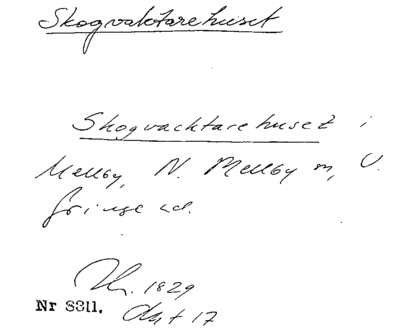 Skogvaktarehuset
Skogvacktarehuset i
Mellby, N. Mellby sn, V.
Fringe hd.
Hr. 1829
Nr 8311. Akt 17